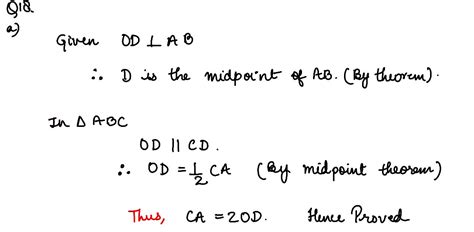 Q18.
a)
Given OD ⊥ AB
∴ D is the midpoint of AB. (By theorem).
In Δ ABC
OD || CD.
∴ OD = 1/2 CA (By midpoint theorem)
Thus, CA = 2OD. Hence Proved